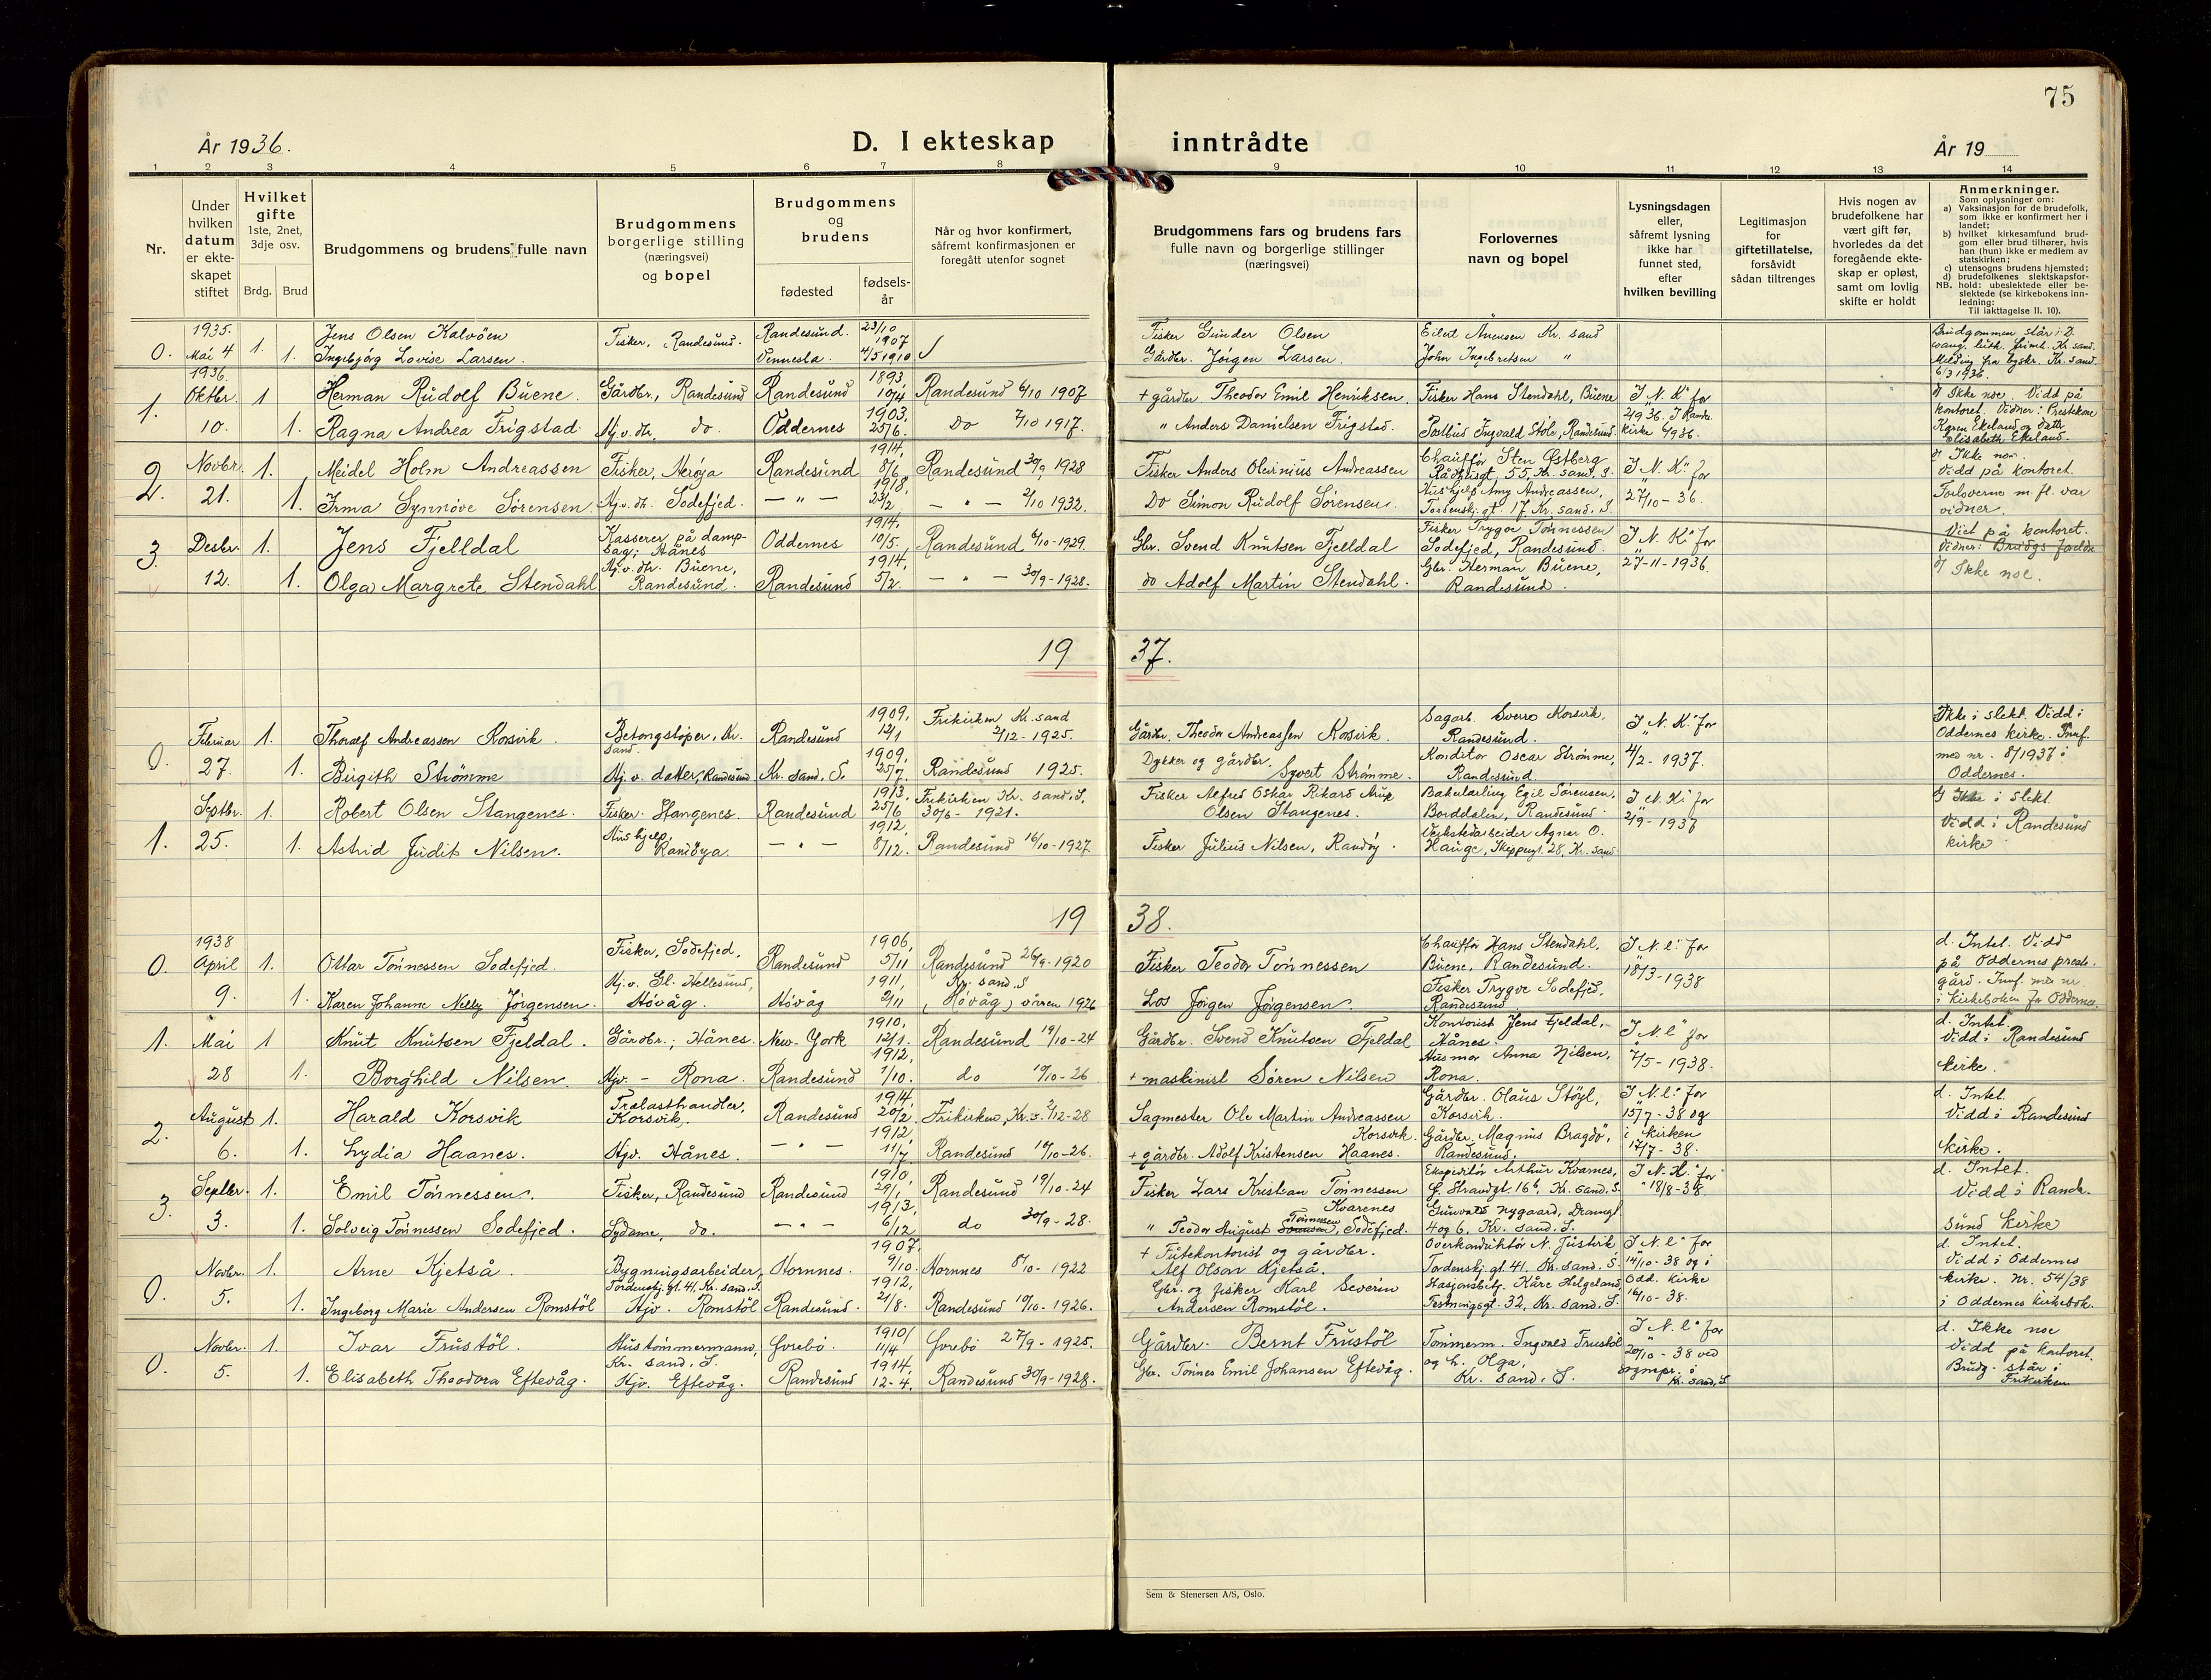 75
År 1936.
D. I ekteskap
inntrådte
År 19
1 2 3 4 5 6 7 8 9 10 11 12 13 14
Nr.
Under
hvilken
datum
er ekte-
skapet
stiftet
Hvilket
gifte
1ste, 2net,
3dje osv.
Brdg. Brud
Brudgommens og brudens fulle navn
Brudgommens
borgerlige stilling
(næringsvei)
og bopel
Brudgommens
og
brudens
fødested
fødsels-
år
Når og hvor konfirmert,
såfremt konfirmasjonen er
foregått utenfor sognet
Brudgommens fars og brudens fars
fulle navn og borgerlige stillinger
(næringsvei)
Forlovernes
navn og bopel
Lysningsdagen
eller,
såfremt lysning
ikke har
funnet sted,
efter
hvilken bevilling
Legitimasjon
for
giftetillatelse,
forsåvidt
sådan tiltrenges
Hvis nogen av
brudefolkene har
vært gift før,
hvorledes da det
foregående ekte-
skap er opløst,
samt om lovlig
skifte er holdt
Anmerkninger.
Som oplysninger om:
a) Vaksinasjon for de brudefolk,
som ikke er konfirmert her i
landet;
b) hvilket kirkesamfund brud-
gom eller brud tilhører, hvis
han (hun) ikke er medlem av
statskirken;
c) utensogns brudens hjemsted;
d) brudefolkenes slektskapsfor-
NB. hold: ubeslektede eller be-
slektede (se kirkebokens inn-
ledning:
Til iakttagelse II. 10).
1935. Jens Olsen Kalvöen Fisker, Randesund. Randesund. 23/10 1907 Fisker Gunder Olsen Eilert Kr. sand Brudgommen står i 2.
0. Mai 4 1. 1. Ingebjørg Lovise Larsen. Vennesla. 4/5 1910 Gårdbr. Jörgen Larsen. John Ingebretsen " evang. luth. Kr. sand.
Melding fra Kr. sand.
6/3 1936.
1936. Oktbr. 1 Herman Rudolf Buene. Gårdbr., Randesund Randesund 1893 10/4 Randesund 6/10 1907 + gårdbr Theodor Emil Henriksen. Fisker Hans Stendahl, Buene I "N. K" for d) Ikke noe. Vidd på
1. 10. 1. Ragna Andrea Frigstad. Hj. v. dtr. do. Oddernes 1903. 25/6. Do 7/10 1917. " Anders Danielsen Frigstad. Postbud Ingvald Støle, Randesund. kontoret. Vidner: Prestekone
Karen Ekeland og datte
Elisabeth Ekeland.
2. Novbr. 1. Meidel Holm Andreassen Fisker, Herøja Randesund 1914, 8/6 Randesund 30/9 1928 Fisker Anders Oleinius Andreassen Chauffør Sten Østberg I "N. K" for d) Ikke noe.
Rådhusgt. 55, Kr. sand. S. Vidd på kontoret.
21. 1. Irma Synnöve Sörensen. Hj. v. dtr. Sodefjed. — " — 1918, 23/2 — " — 2/10 1932. Do Simon Rudolf Sörensen. Hushjelp Amy Andreassen, 27/10 - 36. Forloverne m. fl. var
Tordenskj. gt. 17, Kr. sand. S. vidner.
3. Desbr. 1. Jens Fjelldal Kasserer på damp-
sag; Hånes Oddernes 1914. 10/5. Randesund 6/10 - 1929. Gbr. Svend Knutsen Fjelldal Fisker Trygve Tönnessen
Sodefjed, Randesund. I "N. K" for Vied på kontoret.
12. 1. Olga Margrete Stendahl Hj. v. dtr. Buene,
Randesund. Randesund 1914, 5/2. — " — 30/9 - 1928. do Adolf Martin Stendahl. Gbr. Herman Buene,
Randesund. 27-11-1936. Vidner: Brudgs foreldre
d) Ikke noe.
19 37.
0. Februar 1. Thoralf Andreassen Korsvik. Betongstøper, Kr.
sand. Randesund 1909. 12/1 Frikirken Kr. sand
2/12 - 1925. Gårdbr. Theodor Andreassen Korsvik. Sagarb. Sverre Korsvik,
Randesund. I "N. K" for Ikke i slekt. Vidd i
Oddernes kirke. Innf.
27. 1. Birgith Strömme Hj. v. datter, Randesund Kr. sand. S. 1909. 25/7 Randesund 1925. Dykker og gårdbr.
Syvert Strömme. Konditor Oscar Strömme,
Randesund 4/2 - 1937. med nr. 8/1937 i
Oddernes.
Septbr. 1. Robert Olsen Stangenes. Fisker. Stangenes. Randesund 1913. 25/6 Frikirken Kr. sand. S.
30/6 - 1921. Fisker Alfred Oskar Rikard
Olsen Stangenes. Bakerlærling Egil Sörensen,
Borddalen, Randesund I "N. K" for
2/9 - 1937 d) Ikke i slekt.
1. 25. 1. Astrid Judit Nilsen. Hushjelp,
Randöya — " — 1912, 8/12. Randesund 16/10 - 1927. Fisker Julius Nilsen, Randöy. Verkstedarbeider Agner O.
Hauge, Skippergt. 28, Kr. sand. Vidd i Randesund
kirke
19 38.
1938
0. April 1. Ottar Tönnessen Sodefjed. Fisker, Sodefjed. Randesund 1906, 5/11 Randesund 26/9 - 1920 Fisker Teodor Tönnessen Chauffør Hans Stendahl,
Buene, Randesund. I "N. l." for d. Intet. Vidd
på Oddernes prest-
9. 1. Karen Johanne Nelly Jörgensen. Hj. v. Gl. Hellesund,
Hövåg. Hövåg 1911, 2/11 Kr. sand. S
(Hövåg) våren 1926 Los Jörgen Jörgensen. Fisker Trygve Sodefjed,
Randesund 18/3 - 1938 gård. Innf. med nr
i kirkeboken for Oddernes.
1. Mai 1 Knut Knutsen Fjeldal. Gårdbr.; Hånes. New-York 1910. 12/1. Randesund 19/10 - 24 Gårdbr. Svend Knutsen Fjeldal Kontorist Jens Fjeldal,
Hånes. I "N l" for d. Intet
Vidd i Randesund
28 1. Borghild Nilsen. Hjv. - Rona. Randesund 1912, 1/10. do 10/10 - 26 + maskinist Sören Nilsen Husmor Anna Nilsen,
Rona. 7/5 - 1938. kirke.
2. August 1. Harald Korsvik Trelasthandler,
Korsvik. Randesund 1914, 20/2 Frikirken, Kr. s. 2/12 - 28 Sagmester Ole Martin Andreassen
Korsvik. Gårdbr. Olaus Stöyl,
Korsvik. I "N. l." for
15/7 - 38 og d. Intet.
Vidd i Randesund
6. 1. Lydia Haanes. Hjv. Hånes. — " — 1912, 11/7 Randesund 10/10 - 26. + gårdbr. Adolf Kristensen Haanes. Gårdbr. Magnus Bragdö,
Randesund. i kirken
17/7 - 38. kirke.
3. Septbr. 1. Emil Tönnessen. Fisker, Randesund Randesund 1910, 29/1 Randesund 19/10 - 24 Fisker Lars Kristian Tönnessen
Kvarenes Ekspeditör Arthur Kvarnes,
G. Strandgt. 16b, Kr. sand. S. I "N. K." for
18/8 - 38. d. Intet.
Vidd i Rande-
3. 1. Solveig Tönnessen Sodefjed. Sydame, do. — " — 1913, 6/12 do 30/9 - 28. " Teodor August Sörensen Tönnessen, Sodefjed. Gunvald Nygaard,
4 og 6, Kr. sand. S. sund kirke
0. Novbr. 1. Arne Kjetså. Bygningsarbeider,
Tordenskj. gt. 41, Kr. sand. S. Hornnes. 1907, 9/10. Hornnes 8/10 - 1922 + Futekontorist og gårdbr.
Alf Olsen Kjetså. Overkonduktör N. Justvik
Tordenskj. gt. 41. Kr. sand. S. I "N. l." for
14/10 - 38 og i d. Intet.
Vidd i Oddernes
5. 1. Ingeborg Marie Andersen Romstöl Hjv. Romstöl Randesund. 1912, 21/8. Randesund 10/10 - 1926. Gbr. og fisker Karl Severin
Andersen Romstöl. Stasjonsbetj. Kåre Helgeland,
Festningsgt. 32, Kr. sand. S. Odd. kirke
16/10 - 38. kirke. Nr. 54/38
i Oddernes kirkebok.
0. Novbr. 1. Ivar Frustöl. Hustömmermann,
Kr. sand. S. Övrebö. 1910, 11/4 Övrebö 27/9 - 1925. Gårdbr. Bernt Frustöl Tömmerm. Ingvald Frustöl
og h. Olga,
Kr. sand. S. I "N. l." for
20/10 - 38 ved
sognepr. i
Kr. sand. S d. Ikke noe
Vidd på kontoret.
5. 1. Elisabeth Theodora Eftevåg. Hjv. Eftevåg. Randesund 1914, 12-4. Randesund 30/9 - 1928. Gbr. Tönnes Emil Johansen Eftevåg. Brudg. står i
Frikirken
Sem & Stenersen A/S, Oslo.